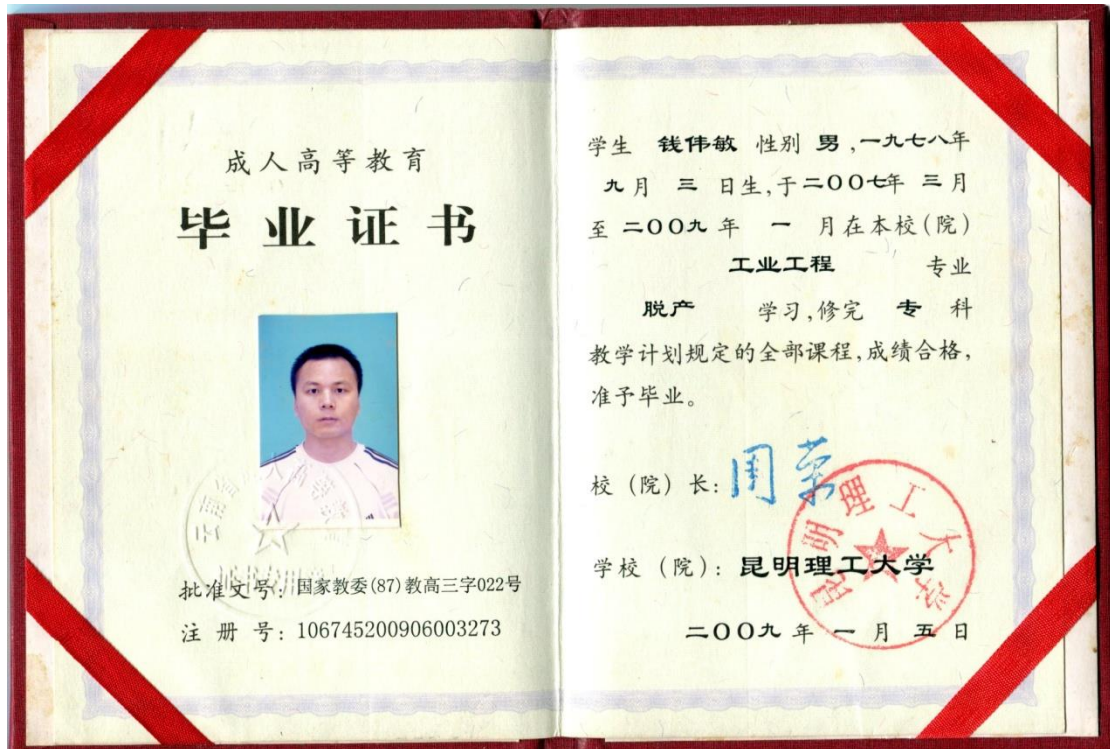 成人高等教育
毕业证书
批准文号：国家教委(87)教高三字022号
注册号：106745200906003273
学生 钱伟敏 性别 男，一九七八年
九月 三 日生，于二〇〇七年 三月
至 二〇〇九 年 一 月在本校（院）
工业工程 专业
脱产 学习，修完 专 科
教学计划规定的全部课程，成绩合格，
准予毕业。
校（院）长：周荣
学校（院）：昆明理工大学
昆明理工大学
二〇〇九 年 一 月 五 日